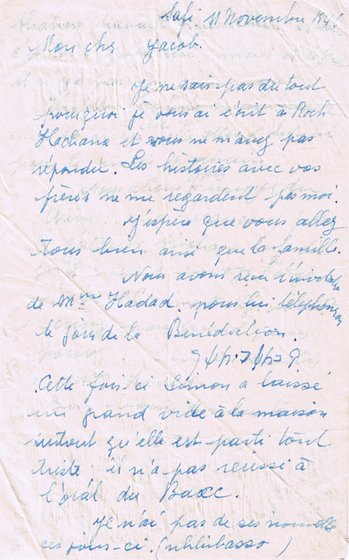 Safi, 11 Novembre 19
Mon cher Jacob.
Je ne sais pas du tout
pourquoi je vous ai écrit à Roch
Hachana et vous ne m'avez pas
répondu. Les histoires avec vos
frères ne me regardent pas moi.
J'espère que vous allez
tous bien ainsi que la famille.
Nous avons reçu l'invitation
de Mme Hadad. nous lui téléphonerons
le jour de la Bénédiction.
Cette fois-ci Simon a laissé
un grand vide à la maison
surtout qu'elle est parti tout
triste: il n'a pas reussi à
l'oral du Bacc.
Je n'ai pas de ses nouvelles
ces jours-ci.